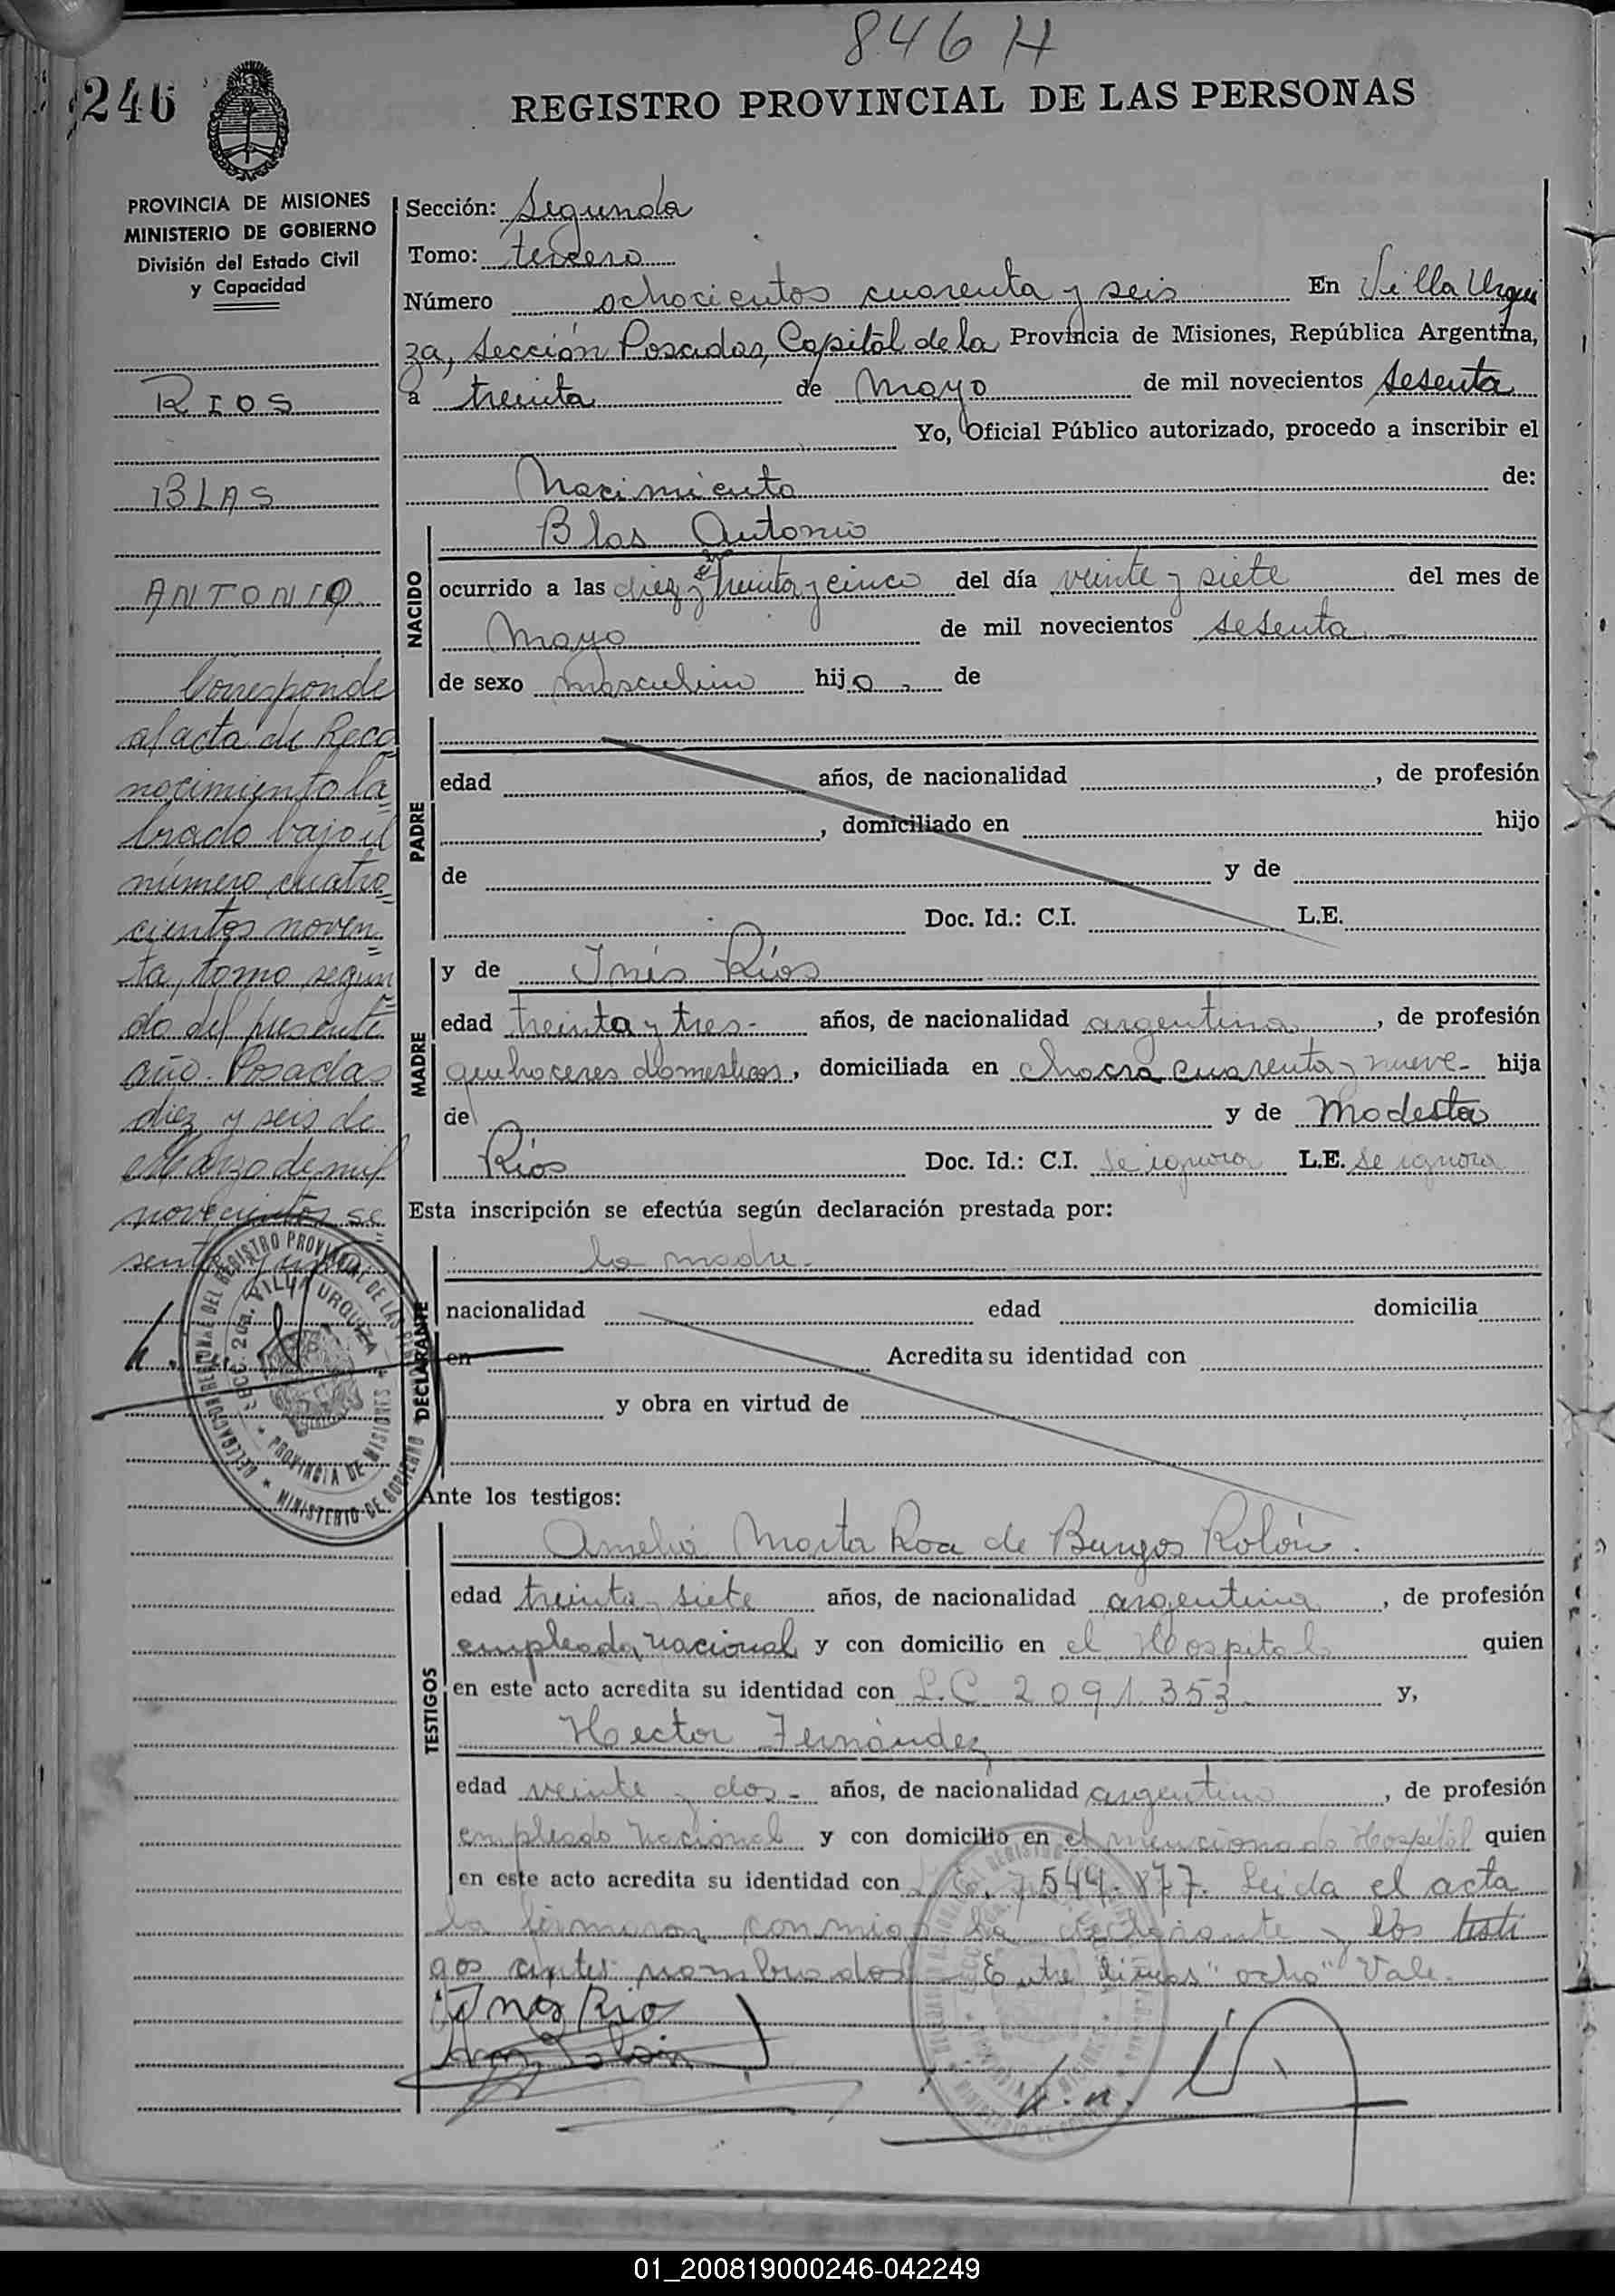 846 H
246
REGISTRO PROVINCIAL DE LAS PERSONAS
PROVINCIA DE MISIONES
MINISTERIO DE GOBIERNO
División del Estado Civil
y Capacidad
RIOS
BLAS
ANTONIO
Corresponde
al acta de Reco
nocimiento la=
brado bajo el
número cuatro=
cientos noven=
ta, tomo segun=
do del presente
año. Posadas
diez y seis de
marzo de mil
novecientos se=
senta y uno
DELEGACION REGIONAL DEL REGISTRO PROVINCIAL DE LAS
SECC. 2da. VILLA URQUIZA
* PROVINCIA DE MISIONES *
* MINISTERIO DE GOBIERNO
Sección: Segunda
Tomo: tercero
Número ochocientos cuarenta y seis En Villa Urqui
za, Sección Posadas, Capital de la Provincia de Misiones, República Argentina,
a treinta de Mayo de mil novecientos sesenta
Yo, Oficial Público autorizado, procedo a inscribir el
Nacimiento de:
NACIDO
Blas Antonio
ocurrido a las diez y ocho treinta y cinco del día veinte y siete del mes de
Mayo de mil novecientos sesenta
de sexo masculino hijo de
PADRE
edad años, de nacionalidad , de profesión
, domiciliado en hijo
de y de
Doc. Id.: C.I. L.E.
MADRE
y de Inés Ríos
edad treinta y tres- años, de nacionalidad argentina , de profesión
quehaceres domésticos, domiciliada en chacra cuarenta y nueve- hija
de y de Modesta
Ríos Doc. Id.: C.I. Se ignora L.E. Se ignora
Esta inscripción se efectúa según declaración prestada por:
DECLARANTE
la madre-
nacionalidad edad domicilia
en Acredita su identidad con
y obra en virtud de
Ante los testigos:
TESTIGOS
Amelia Marta Roa de Burgos Rolón.
edad treinta y siete años, de nacionalidad argentina , de profesión
empleada nacional y con domicilio en el Hospital quien
en este acto acredita su identidad con L.C. 2091.353- y,
Hector Fernández
edad veinte y dos- años, de nacionalidad argentino , de profesión
empleado nacional y con domicilio en el mencionado Hospital quien
en este acto acredita su identidad con 7.544.877. Leida el acta
la firmaron conmigo la declarante y los testi
gos antes nombrados- Entre lineas "ocho" Vale.
Ines Rios
01_200819000246-042249